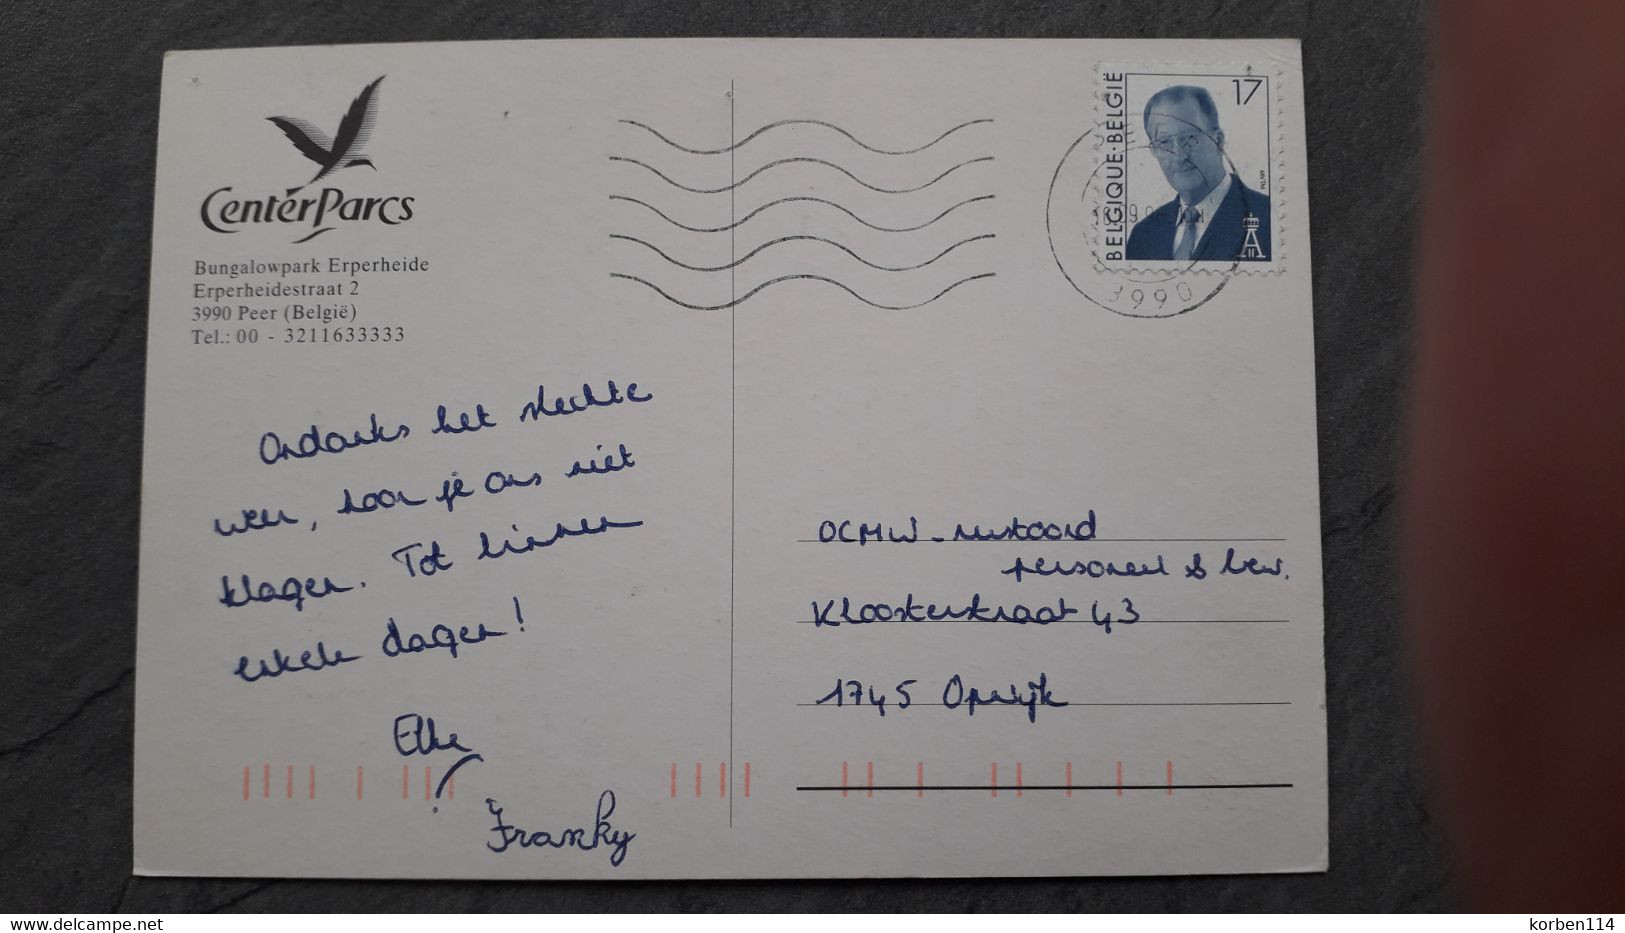 CenterParcs
Bungalowpark Erperheide
Erperheidestraat 2
3990 Peer (België)
Tel.: 00 - 3211633333
Ondanks het slechte
weer, hoor je ons niet
klagen. Tot binnen
enkele dagen!
Elke
Franky
BELGIQUE·BELGIË
17
MVTM
3990
OCMW-rustoord
personeel & bew.
Kloosterstraat 43
1745 Opwijk
www.delcampe.net
korben114